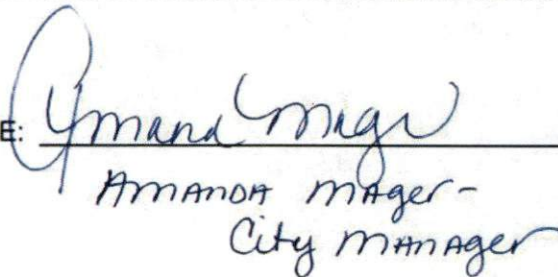 E: Amanda Mager
AMANDA MAGER-
City MANAGER